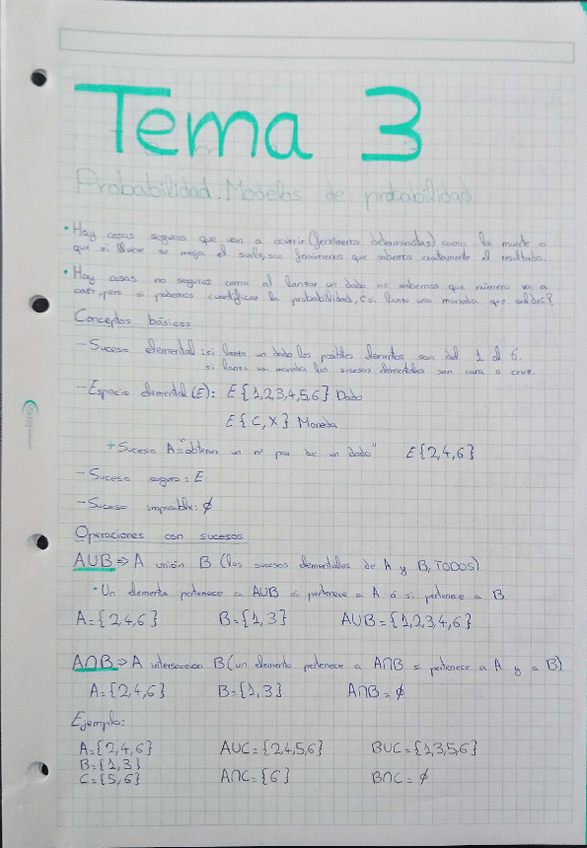 Tema 3
Probabilidad. Modelos de probabilidad.
• Hay cosas seguras que van a ocurrir (fenómenos deterministas) como la muerte o
que si llueve se moja el suelo, son fenómenos que sabemos exactamente el resultado.
• Hay cosas no seguras como al lanzar un dado no sabemos que número va a
caer, pero si podemos cuantificar la probabilidad, ¿si lanzo una moneda que saldrá?
Conceptos básicos
- Suceso elemental: si lanzo un dado los posibles elementos son del 1 al 6.
si lanzo una moneda los sucesos elementales son cara o cruz.
- Espacio elemental (E): E{1,2,3,4,5,6} Dado
E{C,X} Moneda
+ Suceso A="obtener un nº par de un dado" E{2,4,6}
- Suceso seguro: E
- Suceso imposible: ∅
Operaciones con sucesos
AUB ⇒ A unión B (los sucesos elementales de A y B, TODOS)
• Un elemento pertenece a AUB si pertenece a A ó si pertenece a B.
A={2,4,6} B={1,3} AUB={1,2,3,4,6}
A∩B ⇒ A interseccion B (un elemento pertenece a A∩B si pertenece a A y a B)
A={2,4,6} B={1,3} A∩B=∅
Ejemplo:
A={2,4,6} AUC={2,4,5,6} BUC={1,3,5,6}
B={1,3}
C={5,6} A∩C={6} B∩C=∅